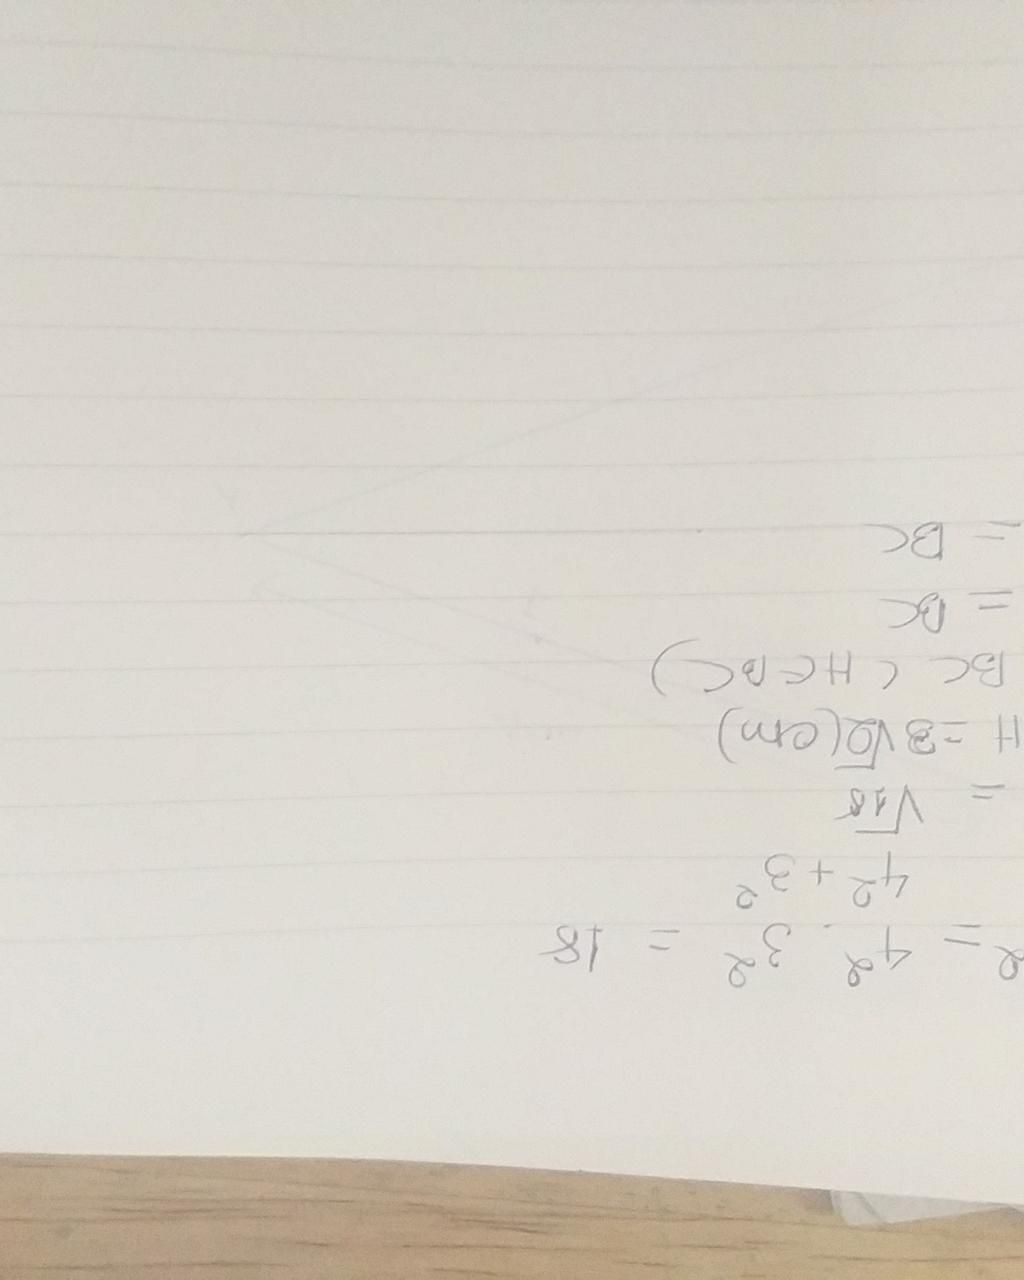 2 = 4² . 3² = 18
4² + 3²
= √18
H = 3√2 (cm)
BC ( HC BC )
= BC
= BC